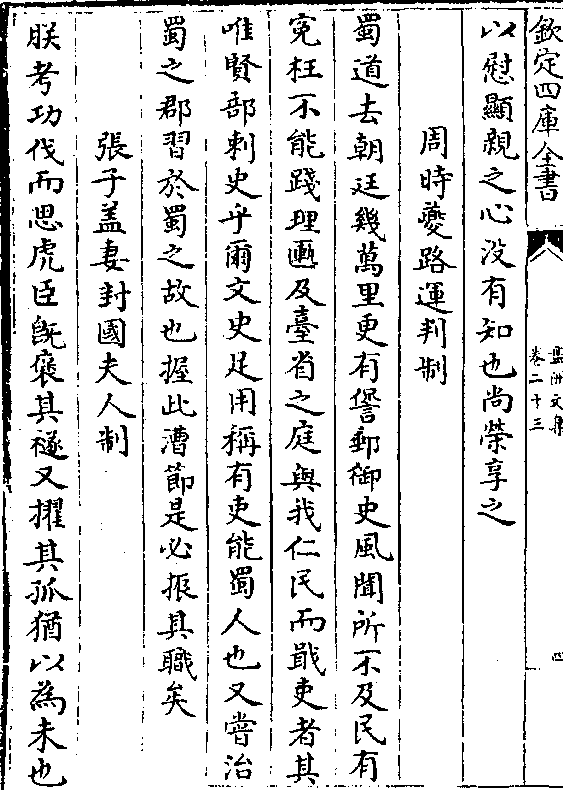 欽定四庫全書
盤洲文集
卷二十三
四
以慰顯親之心没有知也尚榮享之
周時夔路運判制
蜀道去朝廷幾萬里吏有㑽郵御史風聞所不及民有
寃枉不能踐理匭及臺省之庭與我仁民而戢吏者其
唯賢部刺史乎爾文史足用稱有吏能蜀人也又嘗治
蜀之郡習於蜀之故也握此漕節是必振其職矣
張子葢妻封國夫人制
朕考功伐而思虎臣旣襃其襚又擢其孤猶以為未也